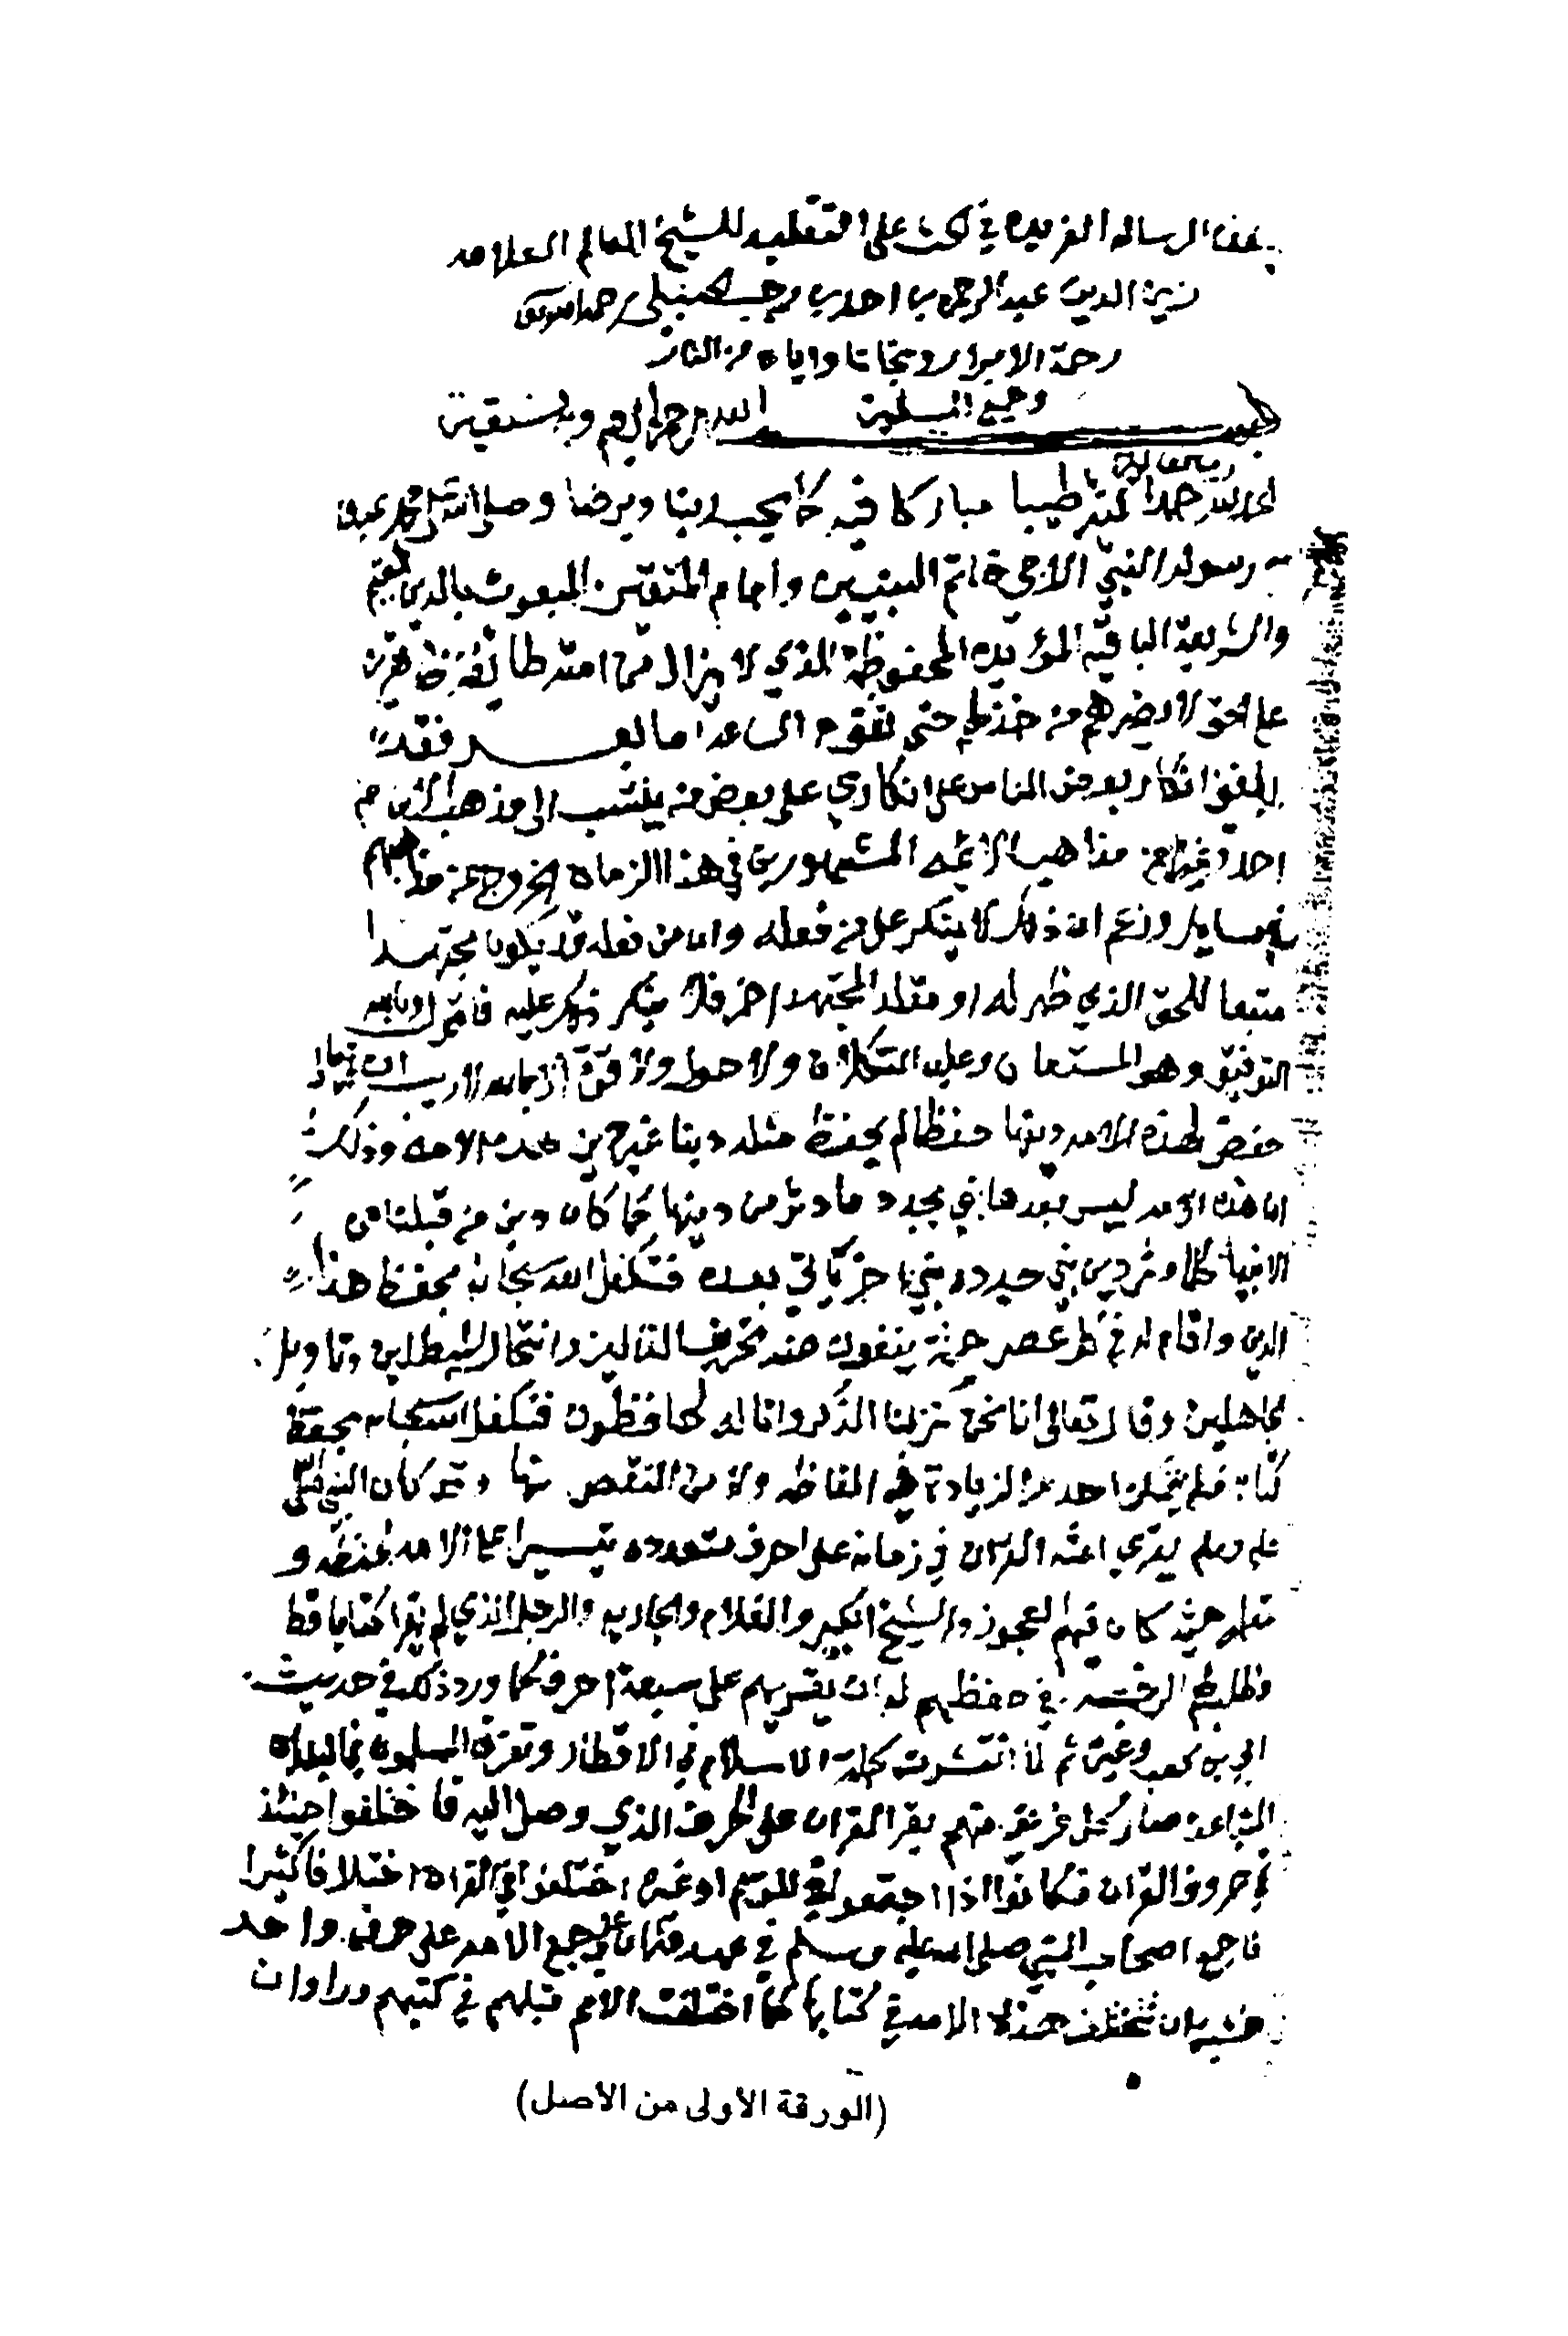 هذه الرساله الفريده في الحث على التقليد للشيخ العالم العلامه
زين الدين عبد الرحمن بن احمد بن رجب الحنبلي رحمه الله
رحمة الابرار ونجانا واياه من النار
وجميع المسلمين
بسم الله الرحمن الرحيم وبه نستعين
الحمد لله حمدا كثيرا طيبا مباركا فيه كما يحب ربنا ويرضا وصلى الله على محمد عبده
ورسوله النبي الامي خاتم النبيين وامام المتقين المبعوث بالدين القيم
والشريعة الباقيه المؤيده المحفوظة الذي لا يزال من امته طائفة ظاهرين
على الحق لا يضرهم من خذلهم حتى تقوم الساعة اما بعد فقد
بلغني انكار بعض الناس على انكاري على بعض من ينتسب الى مذهب الامام
احمد وغيره من مذاهب الائمه المشهورين في هذا الزمان الخروج عن مذاهبهم
في مسايل وزعم ان ذلك لا ينكر على من فعله وان من فعله قد يكون مجتهدا
متبعا للحق الذي ظهر له او مقلدا لمجتهد اخر فلا ينكر ذلك عليه فاقول وبالله
التوفيق وهو المستعان وعليه التكلان ولا حول ولا قوة الا بالله لا ريب ان الله
حفظ لهذه الامه دينها حفظا لم يحفظ مثله دينا غير دين هذه الامه وذلك
ان هذه الامه ليس بعدها نبي يجدد ما دثر من دينها كما كان دين من قبلنا من
الانبيا كلما دثر دين نبي جدده نبي اخر ياتي بعده فتكفل الله سبحانه بحفظ هذا
الدين واقام له في كل عصر حملة ينفون عنه تحريف الغالين وانتحال المبطلين وتاويل
الجاهلين وقال تعالى انا نحن نزلنا الذكر وانا له لحافظون فتكفل الله سبحانه بحفظ
كتابه فلم يتمكن احد من الزيادة في الفاظه ولا من النقص منها وقد كان النبي صلى الله
عليه وسلم يقري امته القران في زمانه على احرف متعدده تيسيرا على الامه لحفظه و
تعلمه حيث كان فيهم العجوز والشيخ الكبير والغلام والجاريه والرجل الذي لم يقرا كتابا قط
وطلب لهم الرخصه في حفظهم له ان يقريهم على سبعة احرف كما ورد ذلك في حديث
ابي بن كعب وغيره ثم لما انتشرت كلمة الاسلام في الاقطار وتفرق المسلمون في البلدان
المتباعدة صار كل فريق منهم يقرا القران على الحرف الذي وصل اليه فاختلفوا حينئذ
في حروف القران فكانوا اذا اجتمعوا في الموسم او غيره اختلفوا في القران اختلافا كثيرا
فاجمع اصحاب النبي صلى الله عليه وسلم في عهد عثمان على جمع الامه على حرف واحد
خشية ان تختلف هذه الامه في كتابها كما اختلفت الامم قبلهم في كتبهم وراوا ان
(الورقة الأولى من الأصل)